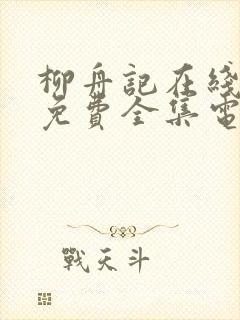 柳舟記在綫
免費全集電
戰天斗